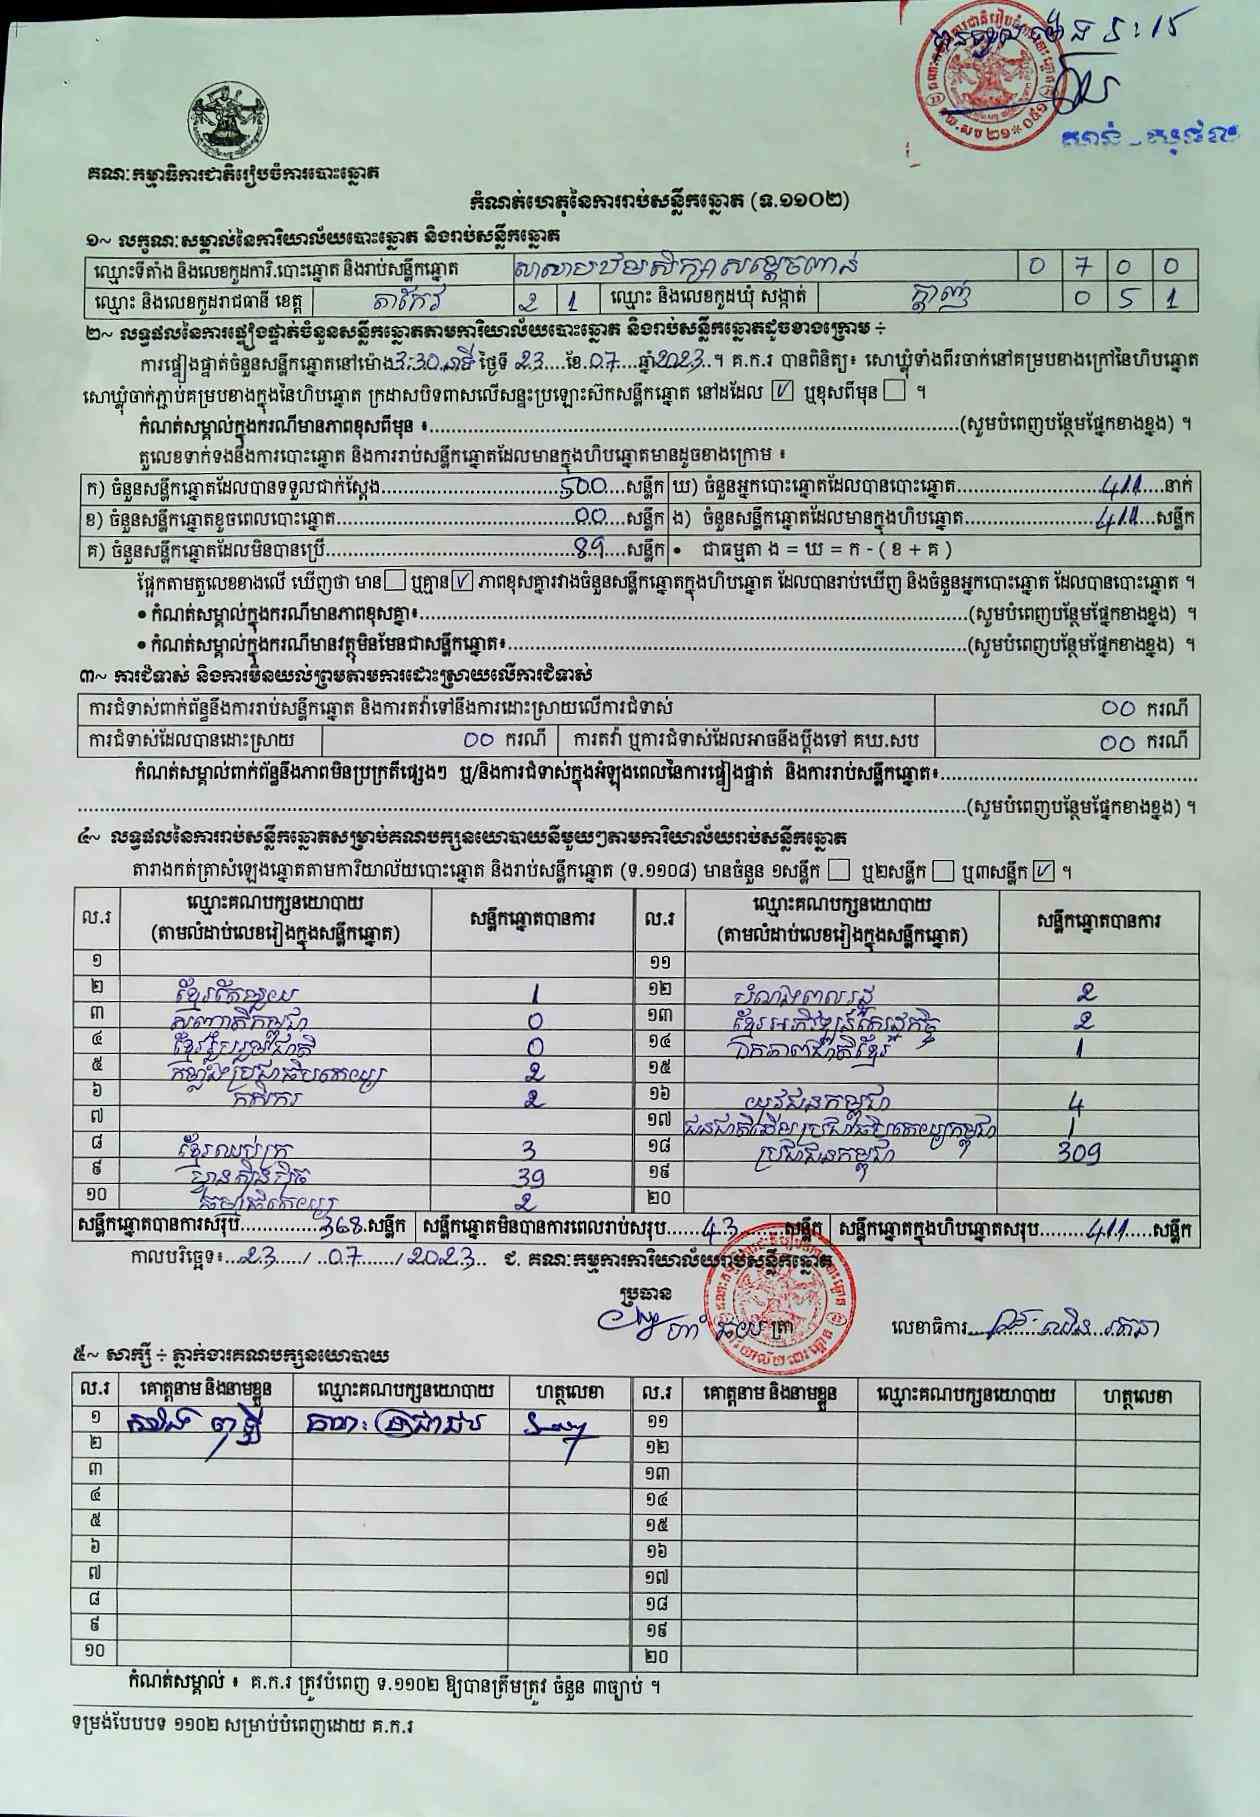 ៩:១៥
គណៈកម្មាធិការជាតិរៀបចំការបោះឆ្នោត
កំណត់ហេតុនៃការរាប់សន្លឹកឆ្នោត (ទ.១១០២)
១~ លក្ខណៈសម្គាល់នៃការិយាល័យបោះឆ្នោត និងរាប់សន្លឹកឆ្នោត
ឈ្មោះទីតាំង និងលេខកូដការិ.បោះឆ្នោត និងរាប់សន្លឹកឆ្នោត សាលាបឋមសិក្សាសម្តេចពាន់ 0 7 0 0
ឈ្មោះ និងលេខកូដរាជធានី ខេត្ត តាកែវ 2 1 ឈ្មោះ និងលេខកូដឃុំ សង្កាត់ ក្ដាញ់ 0 5 1
២~ លទ្ធផលនៃការផ្ទៀងផ្ទាត់ចំនួនសន្លឹកឆ្នោតតាមការិយាល័យបោះឆ្នោត និងរាប់សន្លឹកឆ្នោតដូចខាងក្រោម ÷
ការផ្ទៀងផ្ទាត់ចំនួនសន្លឹកឆ្នោតនៅម៉ោង 3:30 នាទី ថ្ងៃទី 23 ខែ 07 ឆ្នាំ 2023 ។ គ.ក.រ បានពិនិត្យ៖ សោឃ្លុំទាំងពីរចាក់នៅគម្របខាងក្រៅនៃហិបឆ្នោត
សោឃ្លុំចាក់ភ្ជាប់គម្របខាងក្នុងនៃហិបឆ្នោត ក្រដាសបិទពាសលើសន្ទះប្រឡោះស៊កសន្លឹកឆ្នោត នៅដដែល ☑ ឬខុសពីមុន ☐ ។
កំណត់សម្គាល់ក្នុងករណីមានភាពខុសពីមុន ៖..........(សូមបំពេញបន្ថែមផ្នែកខាងខ្នង) ។
តួលេខទាក់ទងនឹងការបោះឆ្នោត និងការរាប់សន្លឹកឆ្នោតដែលមានក្នុងហិបឆ្នោតមានដូចខាងក្រោម ៖
ក) ចំនួនសន្លឹកឆ្នោតដែលបានទទួលជាក់ស្តែង..........500 សន្លឹក ឃ) ចំនួនអ្នកបោះឆ្នោតដែលបានបោះឆ្នោត..........411 នាក់
ខ) ចំនួនសន្លឹកឆ្នោតខូចពេលបោះឆ្នោត..........00 សន្លឹក ង) ចំនួនសន្លឹកឆ្នោតដែលមានក្នុងហិបឆ្នោត..........411 សន្លឹក
គ) ចំនួនសន្លឹកឆ្នោតដែលមិនបានប្រើ..........89 សន្លឹក • ជាធម្មតា ង = ឃ = ក - ( ខ + គ )
ផ្អែកតាមតួលេខខាងលើ ឃើញថា មាន ☐ ឬគ្មាន ☑ ភាពខុសគ្នារវាងចំនួនសន្លឹកឆ្នោតក្នុងហិបឆ្នោត ដែលបានរាប់ឃើញ និងចំនួនអ្នកបោះឆ្នោត ដែលបានបោះឆ្នោត ។
• កំណត់សម្គាល់ក្នុងករណីមានភាពខុសគ្នា៖..........(សូមបំពេញបន្ថែមផ្នែកខាងខ្នង) ។
• កំណត់សម្គាល់ក្នុងករណីមានវត្ថុមិនមែនជាសន្លឹកឆ្នោត៖..........(សូមបំពេញបន្ថែមផ្នែកខាងខ្នង) ។
៣~ ការជំទាស់ និងការមិនយល់ព្រមតាមការដោះស្រាយលើការជំទាស់
ការជំទាស់ពាក់ព័ន្ធនឹងការរាប់សន្លឹកឆ្នោត និងការតវ៉ាទៅនឹងការដោះស្រាយលើការជំទាស់ 00 ករណី
ការជំទាស់ដែលបានដោះស្រាយ 00 ករណី ការតវ៉ា ឬការជំទាស់ដែលអាចនឹងប្តឹងទៅ គឃ.សប 00 ករណី
កំណត់សម្គាល់ពាក់ព័ន្ធនឹងភាពមិនប្រក្រតីផ្សេងៗ ឬ/និងការជំទាស់ក្នុងអំឡុងពេលនៃការផ្ទៀងផ្ទាត់ និងការរាប់សន្លឹកឆ្នោត៖..........
..........(សូមបំពេញបន្ថែមផ្នែកខាងខ្នង) ។
៤~ លទ្ធផលនៃការរាប់សន្លឹកឆ្នោតសម្រាប់គណបក្សនយោបាយនីមួយៗតាមការិយាល័យរាប់សន្លឹកឆ្នោត
តារាងកត់ត្រាសំឡេងឆ្នោតតាមការិយាល័យបោះឆ្នោត និងរាប់សន្លឹកឆ្នោត (ទ.១១០៨) មានចំនួន ១សន្លឹក ☐ ឬ២សន្លឹក ☐ ឬ៣សន្លឹក ☑ ។
ល.រ ឈ្មោះគណបក្សនយោបាយ (តាមលំដាប់លេខរៀងក្នុងសន្លឹកឆ្នោត) សន្លឹកឆ្នោតបានការ ល.រ ឈ្មោះគណបក្សនយោបាយ (តាមលំដាប់លេខរៀងក្នុងសន្លឹកឆ្នោត) សន្លឹកឆ្នោតបានការ
១ ១១
២ ខ្មែរតែមួយ 1 ១២ បំណងពលរដ្ឋ 2
៣ សញ្ជាតិកម្ពុជា 0 ១៣ ខ្មែរអភិវឌ្ឍន៍សេដ្ឋកិច្ច 2
៤ ខ្មែររួបរួមជាតិ 0 ១៤ ឯកភាពជាតិខ្មែរ 1
៥ កម្លាំងប្រជាធិបតេយ្យ 2 ១៥
៦ កសិករ 2 ១៦ យុវជនកម្ពុជា 4
៧ ១៧ ជនជាតិដើមប្រជាធិបតេយ្យកម្ពុជា 1
៨ ខ្មែរឈប់ក្រ 3 ១៨ ប្រជាជនកម្ពុជា 309
៩ ហ្វ៊ុនស៊ិនប៉ិច 39 ១៩
១០ ធម្មាធិបតេយ្យ 2 ២០
សន្លឹកឆ្នោតបានការសរុប..........368 សន្លឹក សន្លឹកឆ្នោតមិនបានការពេលរាប់សរុប......43......សន្លឹក សន្លឹកឆ្នោតក្នុងហិបឆ្នោតសរុប........411.....សន្លឹក
កាលបរិច្ឆេទ៖...23...../...07....../2023.. ជ. គណៈកម្មការការិយាល័យរាប់សន្លឹកឆ្នោត
ប្រធាន
ត្រា លេខាធិការ
៥~ សាក្សី ÷ ភ្នាក់ងារគណបក្សនយោបាយ
ល.រ គោត្តនាម និងនាមខ្លួន ឈ្មោះគណបក្សនយោបាយ ហត្ថលេខា ល.រ គោត្តនាម និងនាមខ្លួន ឈ្មោះគណបក្សនយោបាយ ហត្ថលេខា
១ គណៈប្រជាជន ១១
២ ១២
៣ ១៣
៤ ១៤
៥ ១៥
៦ ១៦
៧ ១៧
៨ ១៨
៩ ១៩
១០ ២០
កំណត់សម្គាល់ ៖ គ.ក.រ ត្រូវបំពេញ ទ.១១០២ ឱ្យបានត្រឹមត្រូវ ចំនួន ៣ច្បាប់ ។
ទម្រង់បែបបទ ១១០២ សម្រាប់បំពេញដោយ គ.ក.រ